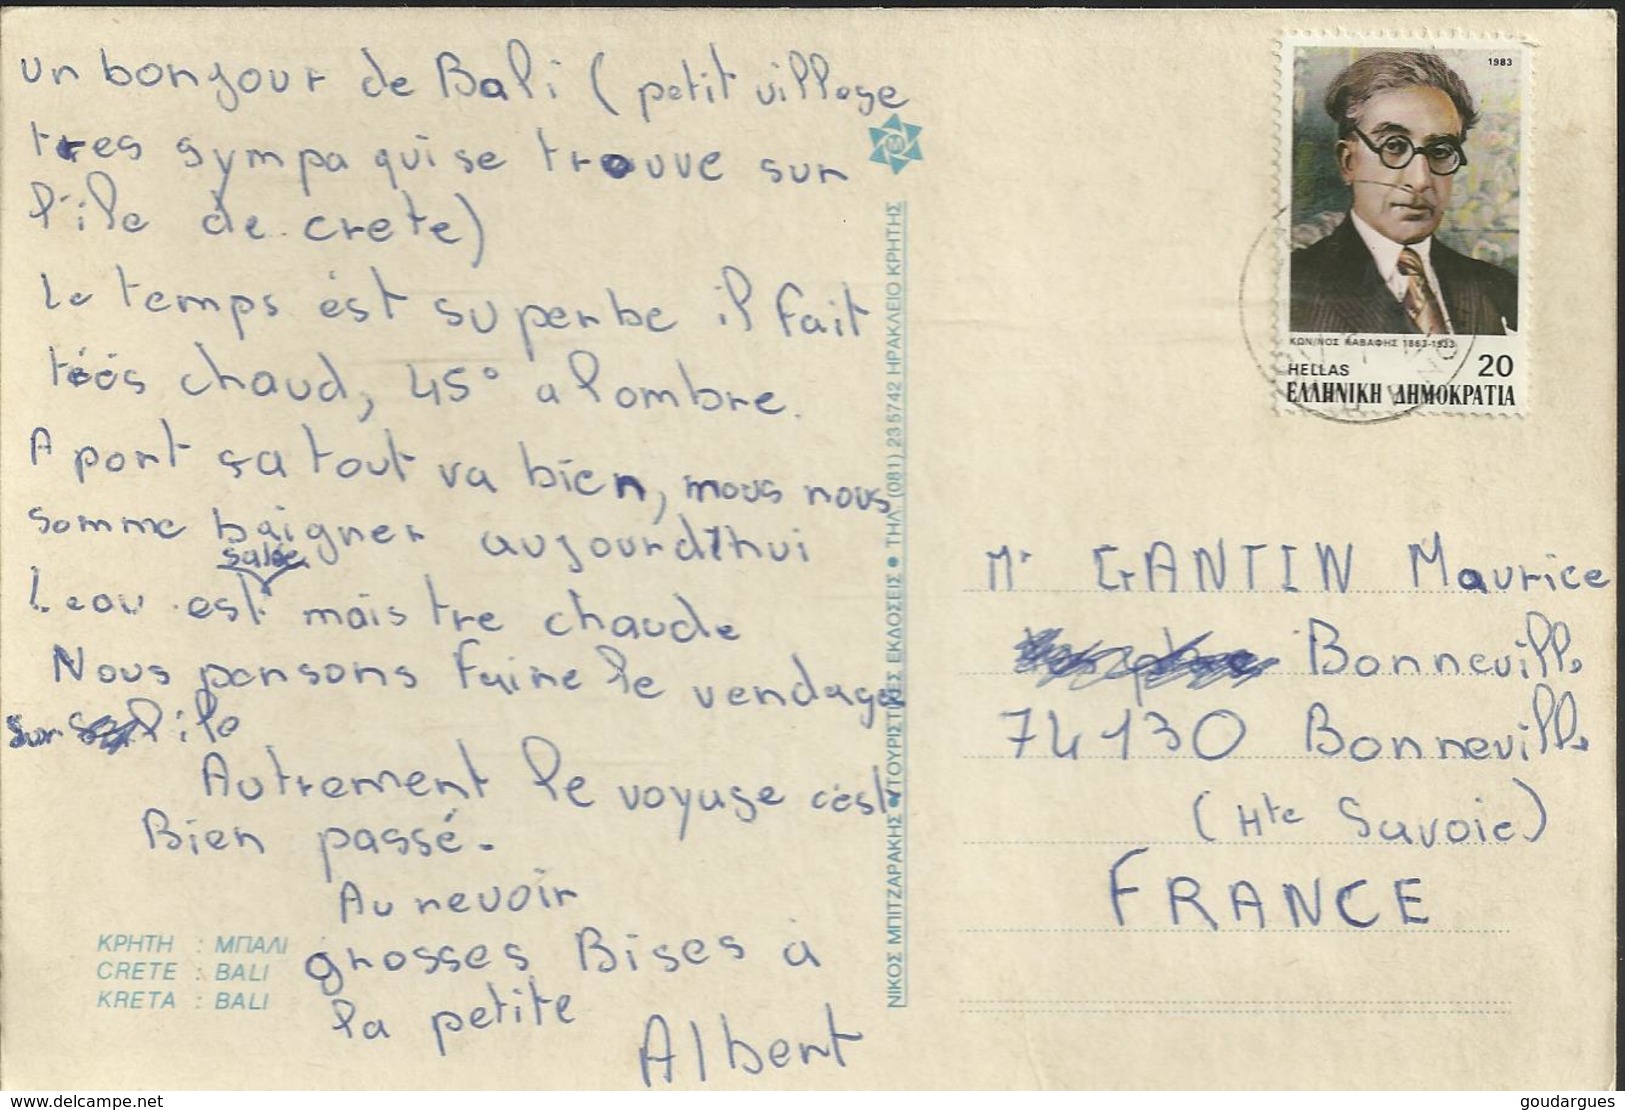 un bonjour de Bali (petit village
tres sympa qui se trouve sur
l'ile de crete)
Le temps ést superbe il fait
trés chaud, 45° a lombre.
A part sa tout va bien, nous nous
somme baigner aujourd'hui
salée
Leau est mais tre chaude
Nous pensons faire le vendage
sur l ile
Autrement le voyage c'est
Bien passé.
Au revoir
grosses Bises à
la petite
Albert
ΚΡΗΤΗ : ΜΠΑΛΙ
CRETE : BALI
KRETA : BALI
M
ΝΙΚΟΣ ΜΠΙΤΖΑΡΑΚΗΣ • ΤΟΥΡΙΣΤΙΚΕΣ ΕΚΔΟΣΕΙΣ • ΤΗΛ. (081) 235742 ΗΡΑΚΛΕΙΟ ΚΡΗΤΗΣ
1983
ΚΩΝ/ΝΟΣ ΚΑΒΑΦΗΣ 1863-1933
HELLAS 20
ΕΛΛΗΝΙΚΗ ΔΗΜΟΚΡΑΤΙΑ
Mr GANTIN Maurice
Bonneville
74130 Bonneville
(Hte Savoie)
FRANCE
www.delcampe.net
goudargues